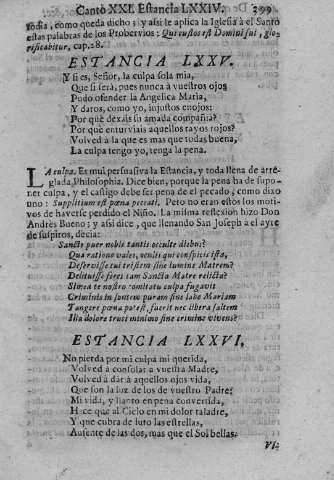 Canto XXI. Estancia LXXIV. 399
todia, como queda dicho; y assi le aplica la Iglesia à el Santo
estas palabras de los Proberbios: Qui custos est Domini sui, glo-
rificabitur, cap. 28.
ESTANCIA LXXV.
Y si es, Señor, la culpa sola mia,
Que si serà, pues nunca à vuestros ojos
Pudo ofender la Angelica Maria,
Y daros, como yo, injustos enojos:
Por què dexais su amada compañia?
Por què enturviais aquellos rayos rojos?
Volved à la que es mas que todas buena,
La culpa tengo yo, tenga la pena.
LA culpa. Es mui persuasiva la Estancia, y toda llena de arre-
glada Philosophia. Dice bien, porque la pena ha de supo-
ner culpa, y el castigo debe ser pena de el pecado, como dixo
uno: Supplitium est pœna peccati. Pero no eran estos los moti-
vos de haverse perdido el Niño. La misma reflexion hizo Don
Andrès Bueno; y asi dice, que llenando San Joseph a el ayre
de suspiros, decia:
Sancte puer nobis tantis occulte diebus?
Qua ratione vales, veniti qui conspicis ista,
Deservisse cui tristem sine lumine Matrem?
Delituisse foret tam Sancta Matre relicta?
Si mea te nostro comitatu culpa fugavit
Criminis in sontem puram sine labe Mariam
Tangere pœna potest, fuerit nec libera saltem
Illa dolore truci minimo sine crimine vivens?
ESTANCIA LXXVI.
No pierda por mi culpa mi querida,
Volved à consolar a vuestra Madre,
Volved à dàr à aquellos ojos vida,
Que son la luz de los de vuestro Padre:
Mi vida, y llanto en pena convertida,
Hace que al Cielo en mi dolor taladre,
Y que cubra de luto las estrellas,
Ausente de las dos, mas que el Sol bellas.
VI-